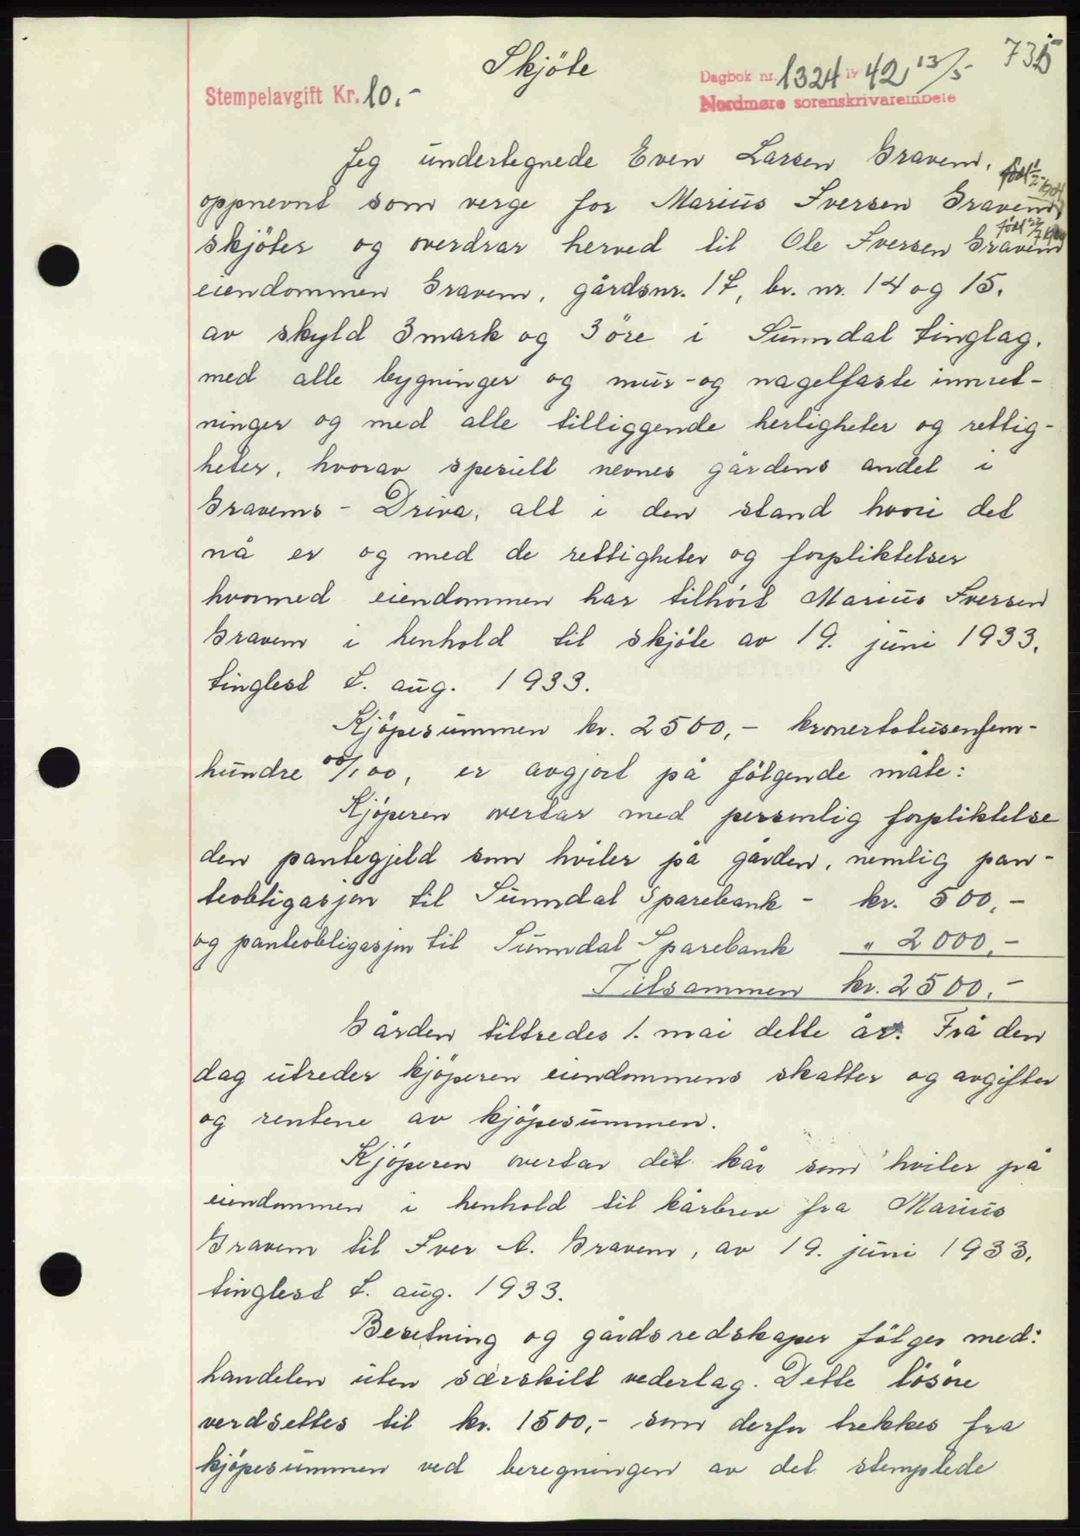 735
Skjöte
Dagbok nr. 1324 iv 42 13/5
Stempelavgift Kr. 10.-
Nordmøre sorenskrivarembete
Jeg undertegnede Even Larsen Gravem,
født
oppnevnt som verge for Marius Iversen Gravem
født
skjöter og overdrar herved til Ole Iversen Gravem
eiendommen Gravem, gårdsnr. 17, br. nr. 14 og 15,
av skyld 3 mark og 3 öre i Sunndal tinglag,
med alle bygninger og mur- og nagelfaste innret-
ninger og med alle tilliggende herligheter og rettig-
heter, hvorav spesielt nevnes gårdens andel i
Gravems- Driva, alt i den stand hvori det
nå er og med de rettigheter og forpliktelser
hvormed eiendommen har tilhört Marius Iversen
Gravem i henhold til skjöte av 19. juni 1933,
tinglest 7. aug. 1933.
Kjöpesummen kr. 2500,- kronertotusenfem-
hundre 00/100, er avgjort på fölgende måte:
Kjöperen overtar med personlig forpliktelse
den pantegjeld som hviler på gården, nemlig pan-
teobligasjon til Sunndal Sparebank - kr. 500,-
og panteobligasjon til Sunndal Sparebank " 2000,-
Tilsammen kr. 2500,-
Gården tiltredes 1. mai dette år. Frå den
dag utreder kjöperen eiendommens skatter og avgifter
og rentene av kjöpesummen.
Kjöperen overtar det kår som hviler på
eiendommen i henhold til kårbrev fra Marius
Gravem til Iver A. Gravem, av 19. juni 1933,
tinglest 7. aug. 1933.
Besetning og gårdsredskaper fölger med:
handelen uten særskilt vederlag. Dette lösöre
verdsettes til kr. 1500,- som derfor trekkes fra
kjöpesummen ved beregningen av det stemplede